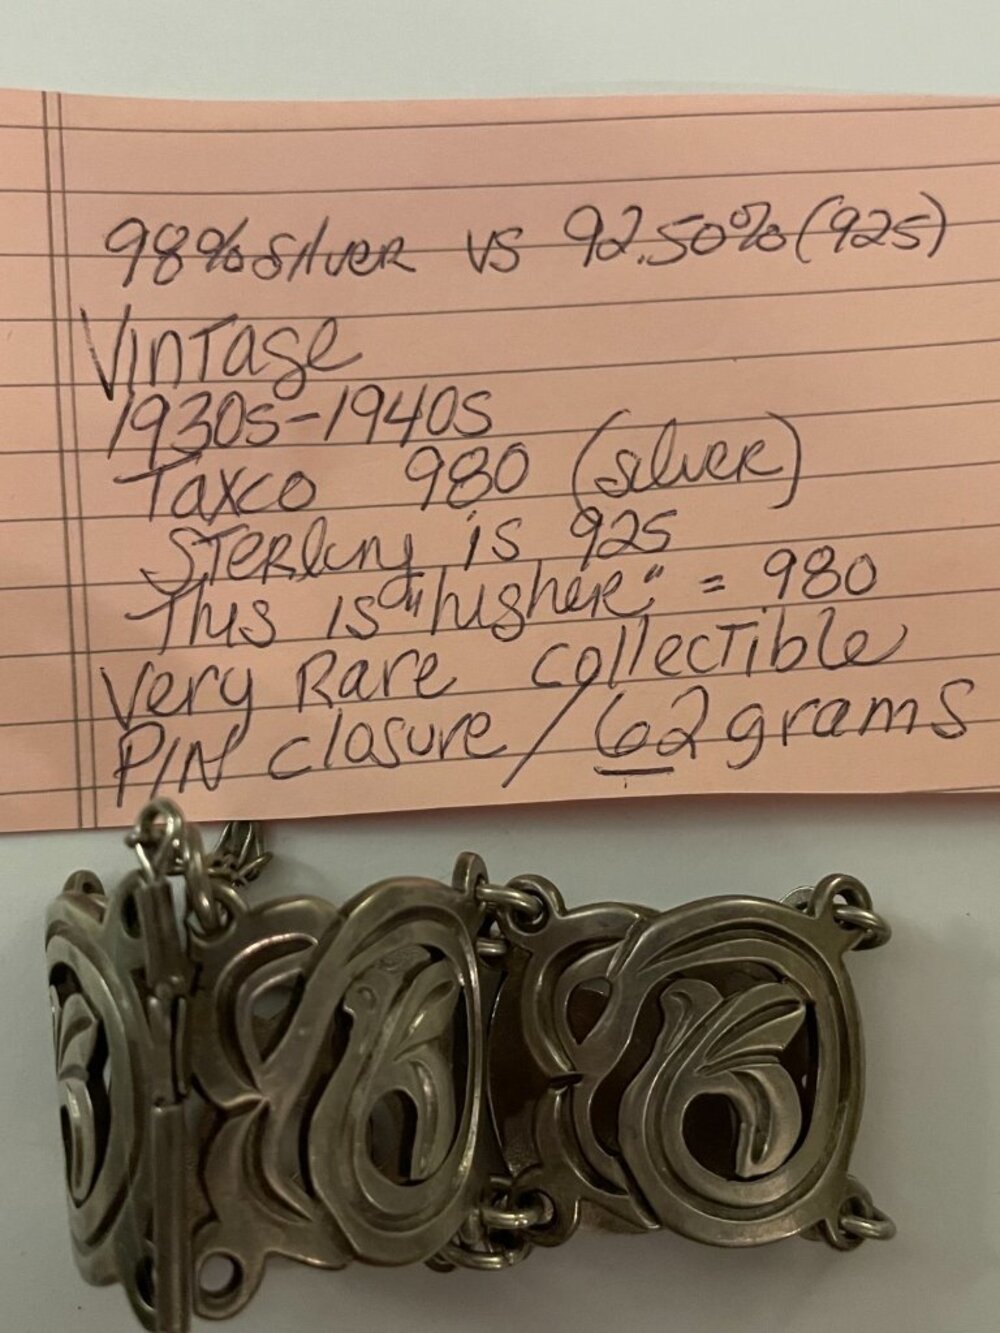 98% Silver vs 92.50% (925)
Vintage
1930s-1940s
Taxco 980 (silver)
Sterling is 925
This is "higher" = 980
Very Rare collectible
PIN closure / 62 grams